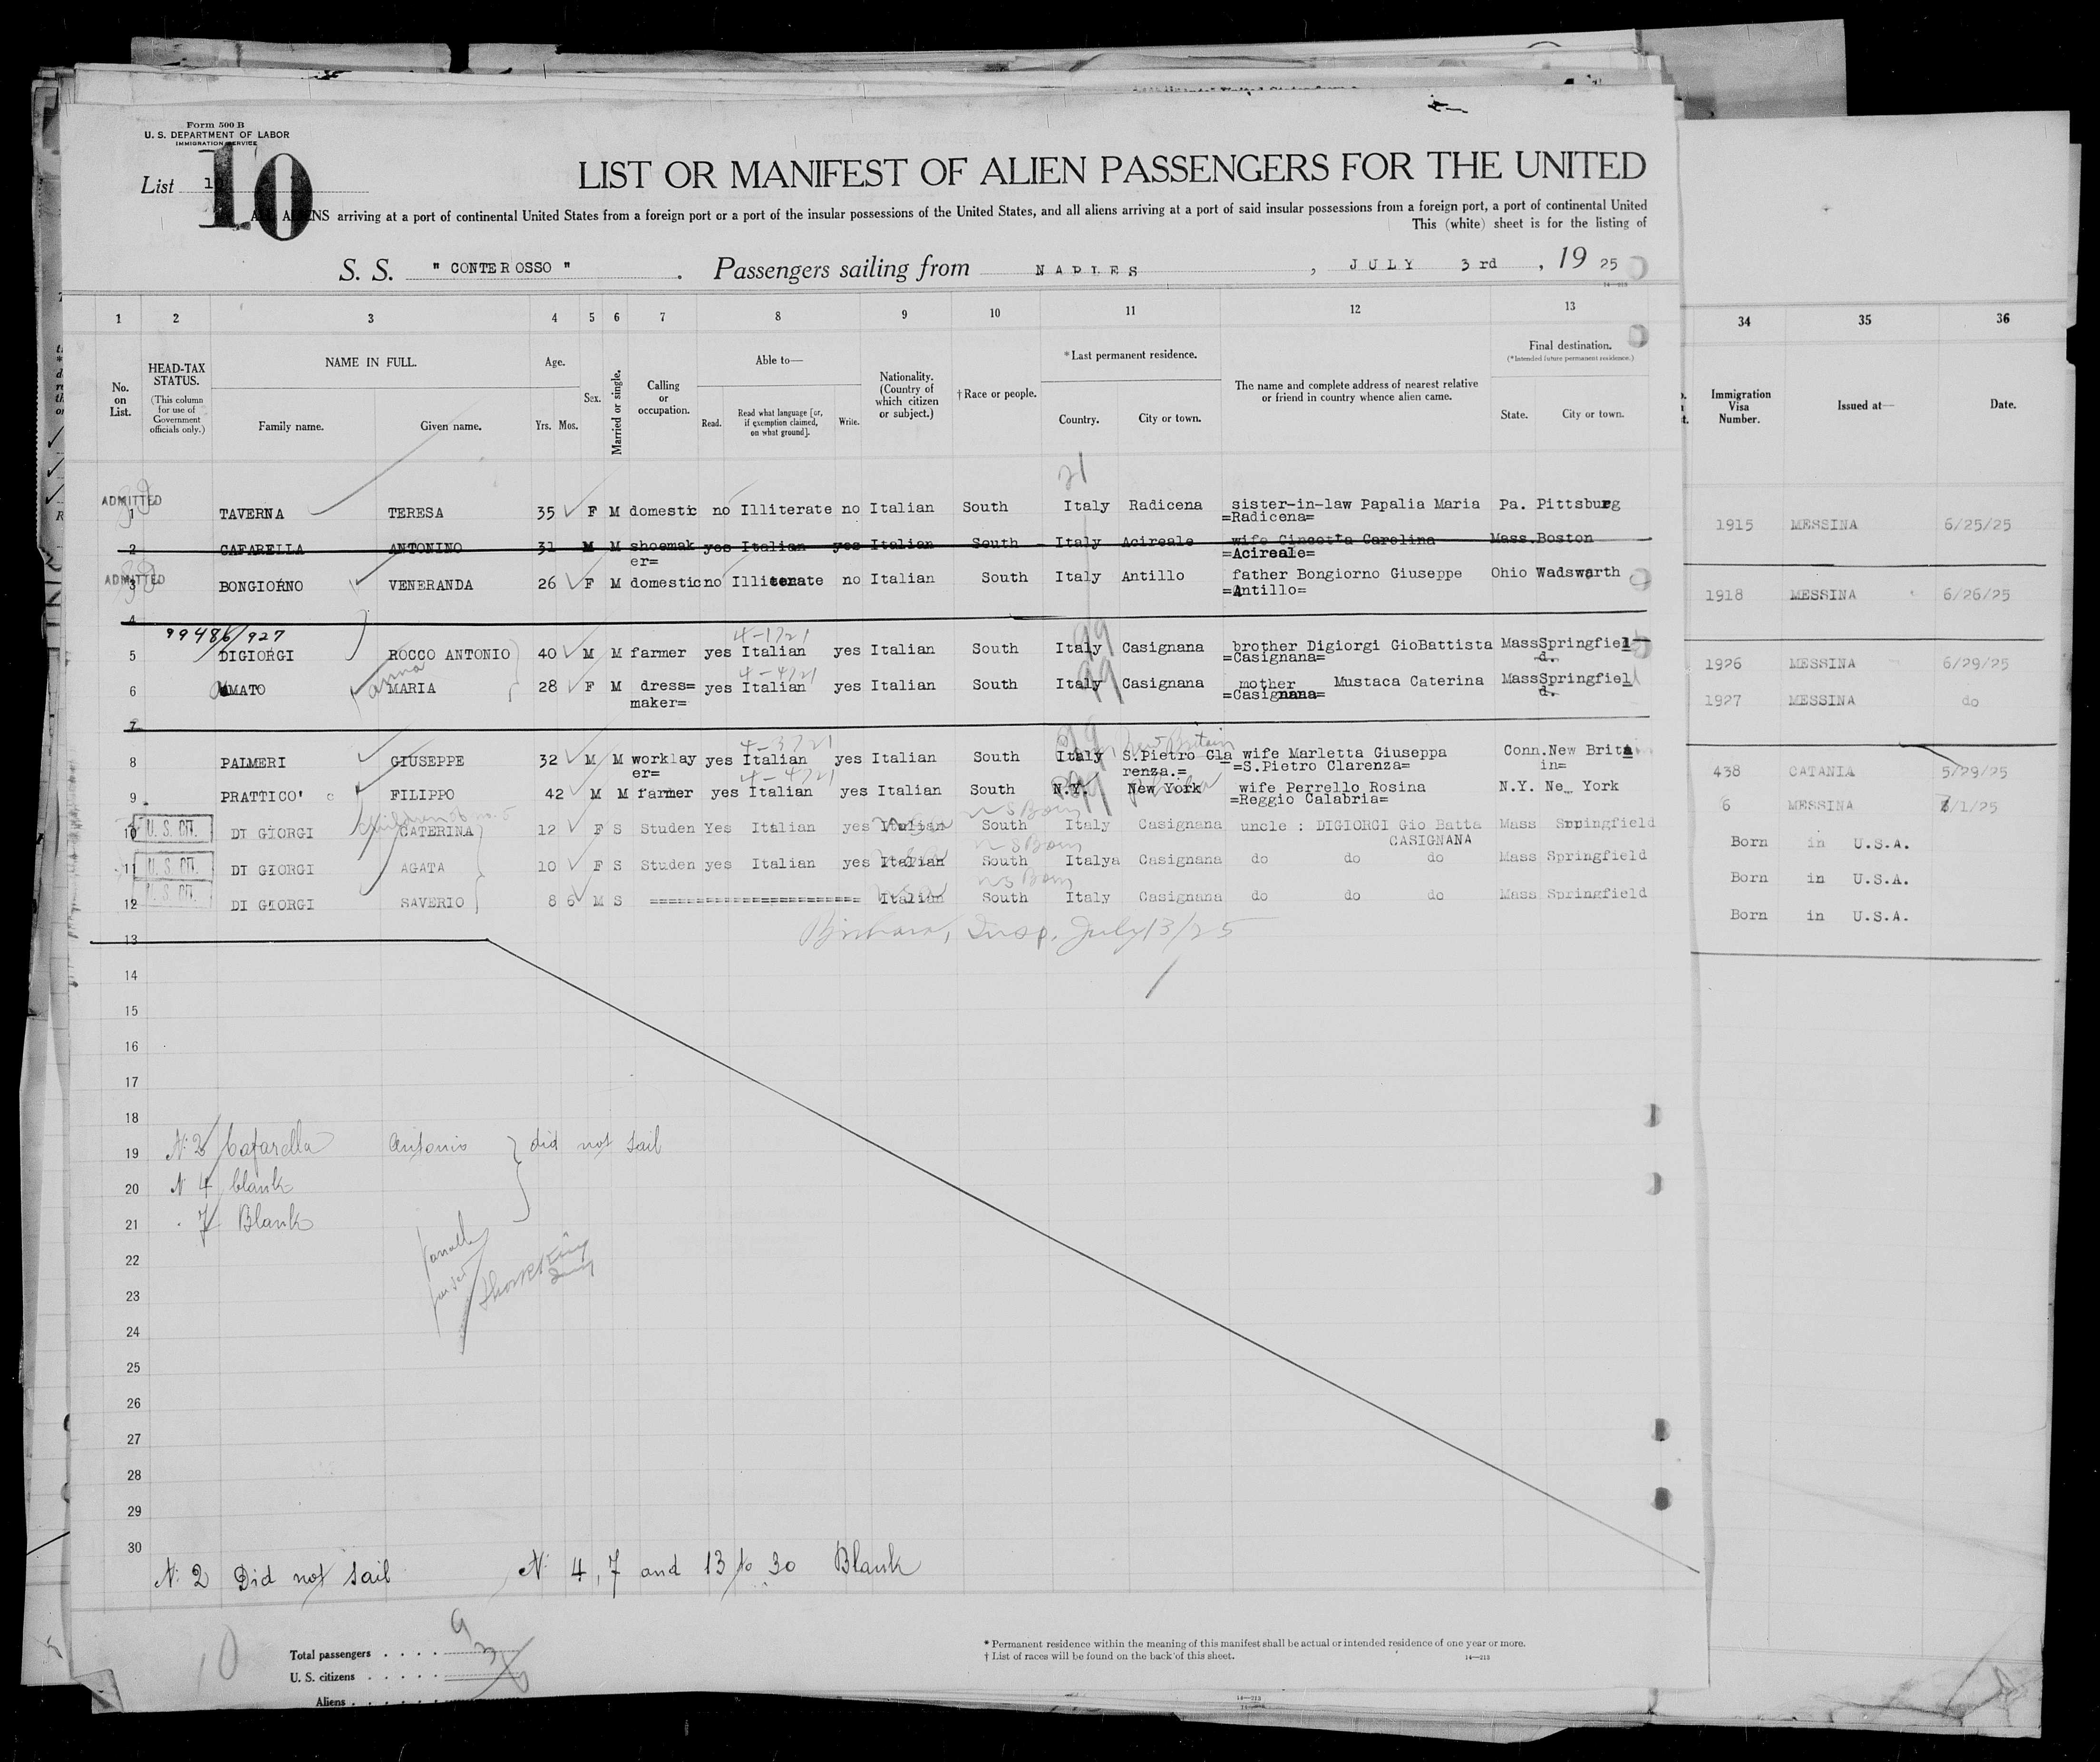 Form 500 B
U. S. DEPARTMENT OF LABOR
IMMIGRATION SERVICE
List 10
LIST OR MANIFEST OF ALIEN PASSENGERS FOR THE UNITED
ALIENS arriving at a port of continental United States from a foreign port or a port of the insular possessions of the United States, and all aliens arriving at a port of said insular possessions from a foreign port, a port of continental United
This (white) sheet is for the listing of
S. S. " CONTE ROSSO " . Passengers sailing from NAPLES , JULY 3rd , 19 25
14—213
1 2 3 4 5 6 7 8 9 10 11 12 13 34 35 36
No. on List.
HEAD-TAX STATUS.
(This column for use of Government officials only.)
NAME IN FULL.
Family name. Given name.
Age.
Yrs. Mos.
Sex.
Married or single.
Calling or occupation.
Able to—
Read. Read what language [or, if exemption claimed, on what ground]. Write.
Nationality. (Country of which citizen or subject.)
†Race or people.
*Last permanent residence.
Country. City or town.
The name and complete address of nearest relative or friend in country whence alien came.
Final destination.
(*Intended future permanent residence.)
State. City or town.
Immigration Visa Number.
Issued at—
Date.
21
ADMITTED
1 TAVERNA TERESA 35 F M domestic no Illiterate no Italian South Italy Radicena sister-in-law Papalia Maria Pa. Pittsburg 1915 MESSINA 6/25/25
=Radicena=
2 CAFARELLA ANTONINO 31 M M shoemak yes Italian yes Italian South Italy Acireale wife Cincotta Carolina Mass. Boston
er= =Acireale=
ADMITTED
3 BONGIORNO VENERANDA 26 F M domestic no Illiterate no Italian South Italy Antillo father Bongiorno Giuseppe Ohio Wadsworth 1918 MESSINA 6/26/25
=Antillo=
4
99486/927 4-1721 99
5 DIGIORGI ROCCO ANTONIO 40 M M farmer yes Italian yes Italian South Italy Casignana brother Digiorgi GioBattista Mass Springfiel 1926 MESSINA 6/29/25
=Casignana= d.
anna 4-4721 99
6 AMATO MARIA 28 F M dress= yes Italian yes Italian South Italy Casignana mother Mustaca Caterina Mass Springfiel 1927 MESSINA do
maker= =Casignana= d.
7
4-3721 99 New Britain
8 PALMERI GIUSEPPE 32 M M worklay yes Italian yes Italian South Italy S.Pietro Gla wife Marletta Giuseppa Conn. New Brita 438 CATANIA 5/29/25
er= renza.= =S.Pietro Clarenza= in=
4-4721 99
9 PRATTICO' FILIPPO 42 M M farmer yes Italian yes Italian South N.Y. New York wife Perrello Rosina N.Y. New York 6 MESSINA /1/25
=Reggio Calabria=
children of no. 5 US Born
10 U. S. CIT. DI GIORGI CATERINA 12 F S Studen Yes Italian yes Italian South Italy Casignana uncle : DIGIORGI Gio Batta Mass Springfield Born in U.S.A.
CASIGNANA
US Born
11 U. S. CIT. DI GIORGI AGATA 10 F S Studen yes Italian yes Italian South Italya Casignana do do do Mass Springfield Born in U.S.A.
US Born
12 U. S. CIT. DI GIORGI SAVERIO 8 6 M S ====================== Italian South Italy Casignana do do do Mass Springfield Born in U.S.A.
Insp. July 13/25
13
14
15
16
17
18
19 N: 2 Cafarella Antonio } did not sail
20 N 4 blank
21 7 Blank
22
23
24
25
26
27
28
29
30
N: 2 Did not sail N: 4, 7 and 13 to 30 Blank
10
Total passengers . . . . 9
U. S. citizens . . . . . 3
Aliens . . . . . .
* Permanent residence within the meaning of this manifest shall be actual or intended residence of one year or more.
† List of races will be found on the back of this sheet.
14—213
14—213